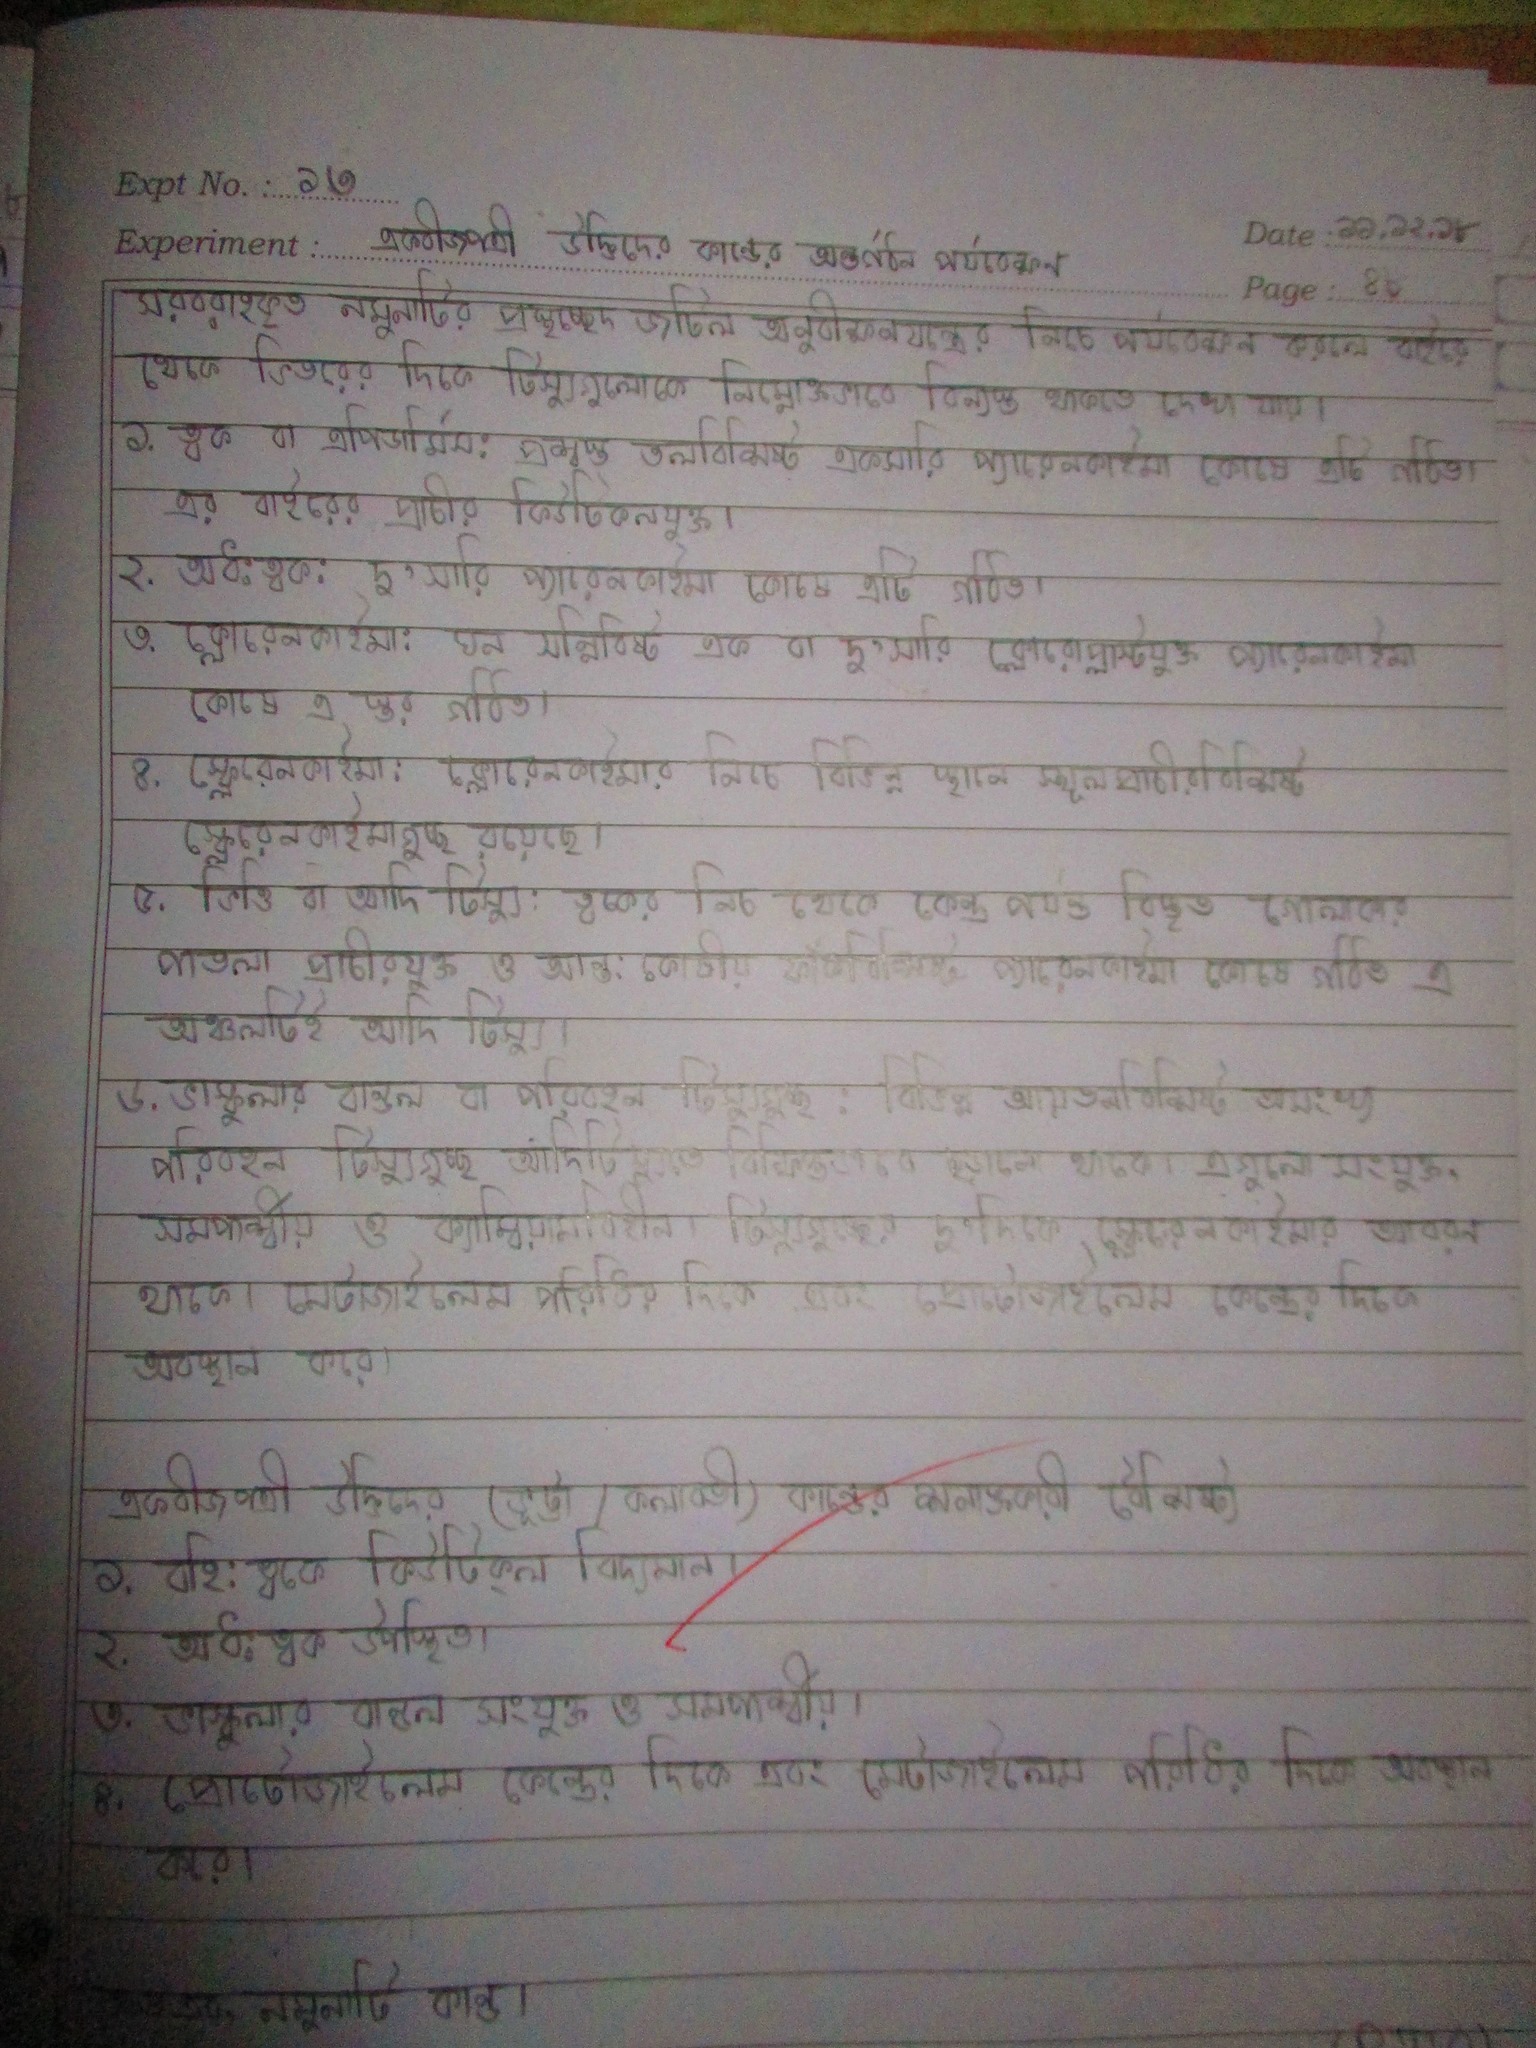 Expt No. : ১৩
Date : ১১.১২.১৮
Experiment : একবীজপত্রী উদ্ভিদের কান্ডের অন্তর্গঠন পর্যবেক্ষন
Page :
সরবরাহকৃত নমুনাটির প্রস্থচ্ছেদ জটিল অনুবীক্ষনযন্ত্রের নিচে পর্যবেক্ষন করলে বাইরে
থেকে ভিতরের দিকে টিস্যুগুলোকে নিম্নোক্তভাবে বিন্যস্ত থাকতে দেখা যায়।
১. ত্বক বা এপিডার্মিস: প্রশস্ত তলবিশিষ্ট একসারি প্যারেনকাইমা কোষে এটি গঠিত।
এর বাইরের প্রাচীর কিউটিকলযুক্ত।
২. অধঃত্বক: দু'সারি প্যারেনকাইমা কোষে এটি গঠিত।
৩. ক্লোরেনকাইমা: ঘন সন্নিবিষ্ট এক বা দু'সারি ক্লোরোপ্লাস্টযুক্ত প্যারেনকাইমা
কোষে এ স্তর গঠিত।
৪. স্ক্লেরেনকাইমা: ক্লোরেনকাইমার নিচে বিভিন্ন স্থানে স্থূলপ্রাচীরবিশিষ্ট
স্ক্লেরেনকাইমাগুচ্ছ রয়েছে।
৫. ভিত্তি বা আদি টিস্যু: ত্বকের নিচ থেকে কেন্দ্র পর্যন্ত বিস্তৃত গোলাকার
পাতলা প্রাচীরযুক্ত ও আন্ত: কোষীয় ফাঁকবিশিষ্ট প্যারেনকাইমা কোষে গঠিত এ
অঞ্চলটিই আদি টিস্যু।
৬. ভাস্কুলার বান্ডল বা পরিবহন টিস্যুগুচ্ছ: বিভিন্ন আয়তনবিশিষ্ট অসংখ্য
পরিবহন টিস্যুগুচ্ছ আদিটিস্যুতে বিক্ষিপ্তভাবে ছড়ানো থাকে। এগুলো সংযুক্ত,
সমপার্শ্বীয় ও ক্যাম্বিয়ামবিহীন। টিস্যুগুচ্ছের দু'দিকে স্ক্লেরেনকাইমার আবরন
থাকে। মেটাজাইলেম পরিধির দিকে এবং প্রোটোজাইলেম কেন্দ্রের দিকে
অবস্থান করে।
একবীজপত্রী উদ্ভিদের (ভুট্টা / কলাবতী) কান্ডের শনাক্তকারী বৈশিষ্ট্য
১. বহিঃত্বকে কিউটিক্‌ল বিদ্যমান।
২. অধঃত্বক উপস্থিত।
৩. ভাস্কুলার বান্ডল সংযুক্ত ও সমপার্শ্বীয়।
৪. প্রোটোজাইলেম কেন্দ্রের দিকে এবং মেটাজাইলেম পরিধির দিকে অবস্থান
করে।
নমুনাটি কান্ড।